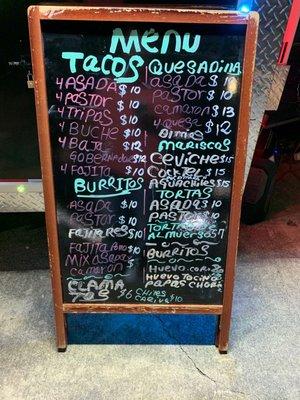 Menu
Tacos
4 ASADA $10
4 PASTOR $10
4 TRIPAS $10
4 BUCHE $10
4 BAJA $12
GOBERNADOR $12
4 FAJITA $10
BURRITOS
ASADA $10
PASTOR $10
FAJITA RES $10
FAJITA POLLO $10
MIX ASADA
CAMARON $
CLAMA
TOS $6 CHILES
$10
QUESADILLA
ASADA $10
PASTOR $10
CAMARON $13
4 QUESA $12
MARISCOS
CEVICHES $15
COCTEL $15
AGUACHILES $15
TORTAS
ASADA $10
PASTOR $10
TORTAS
ALMUERSOS
BURRITOS
HUEVO
HUEVO TOCINO
PAPAS CHORI